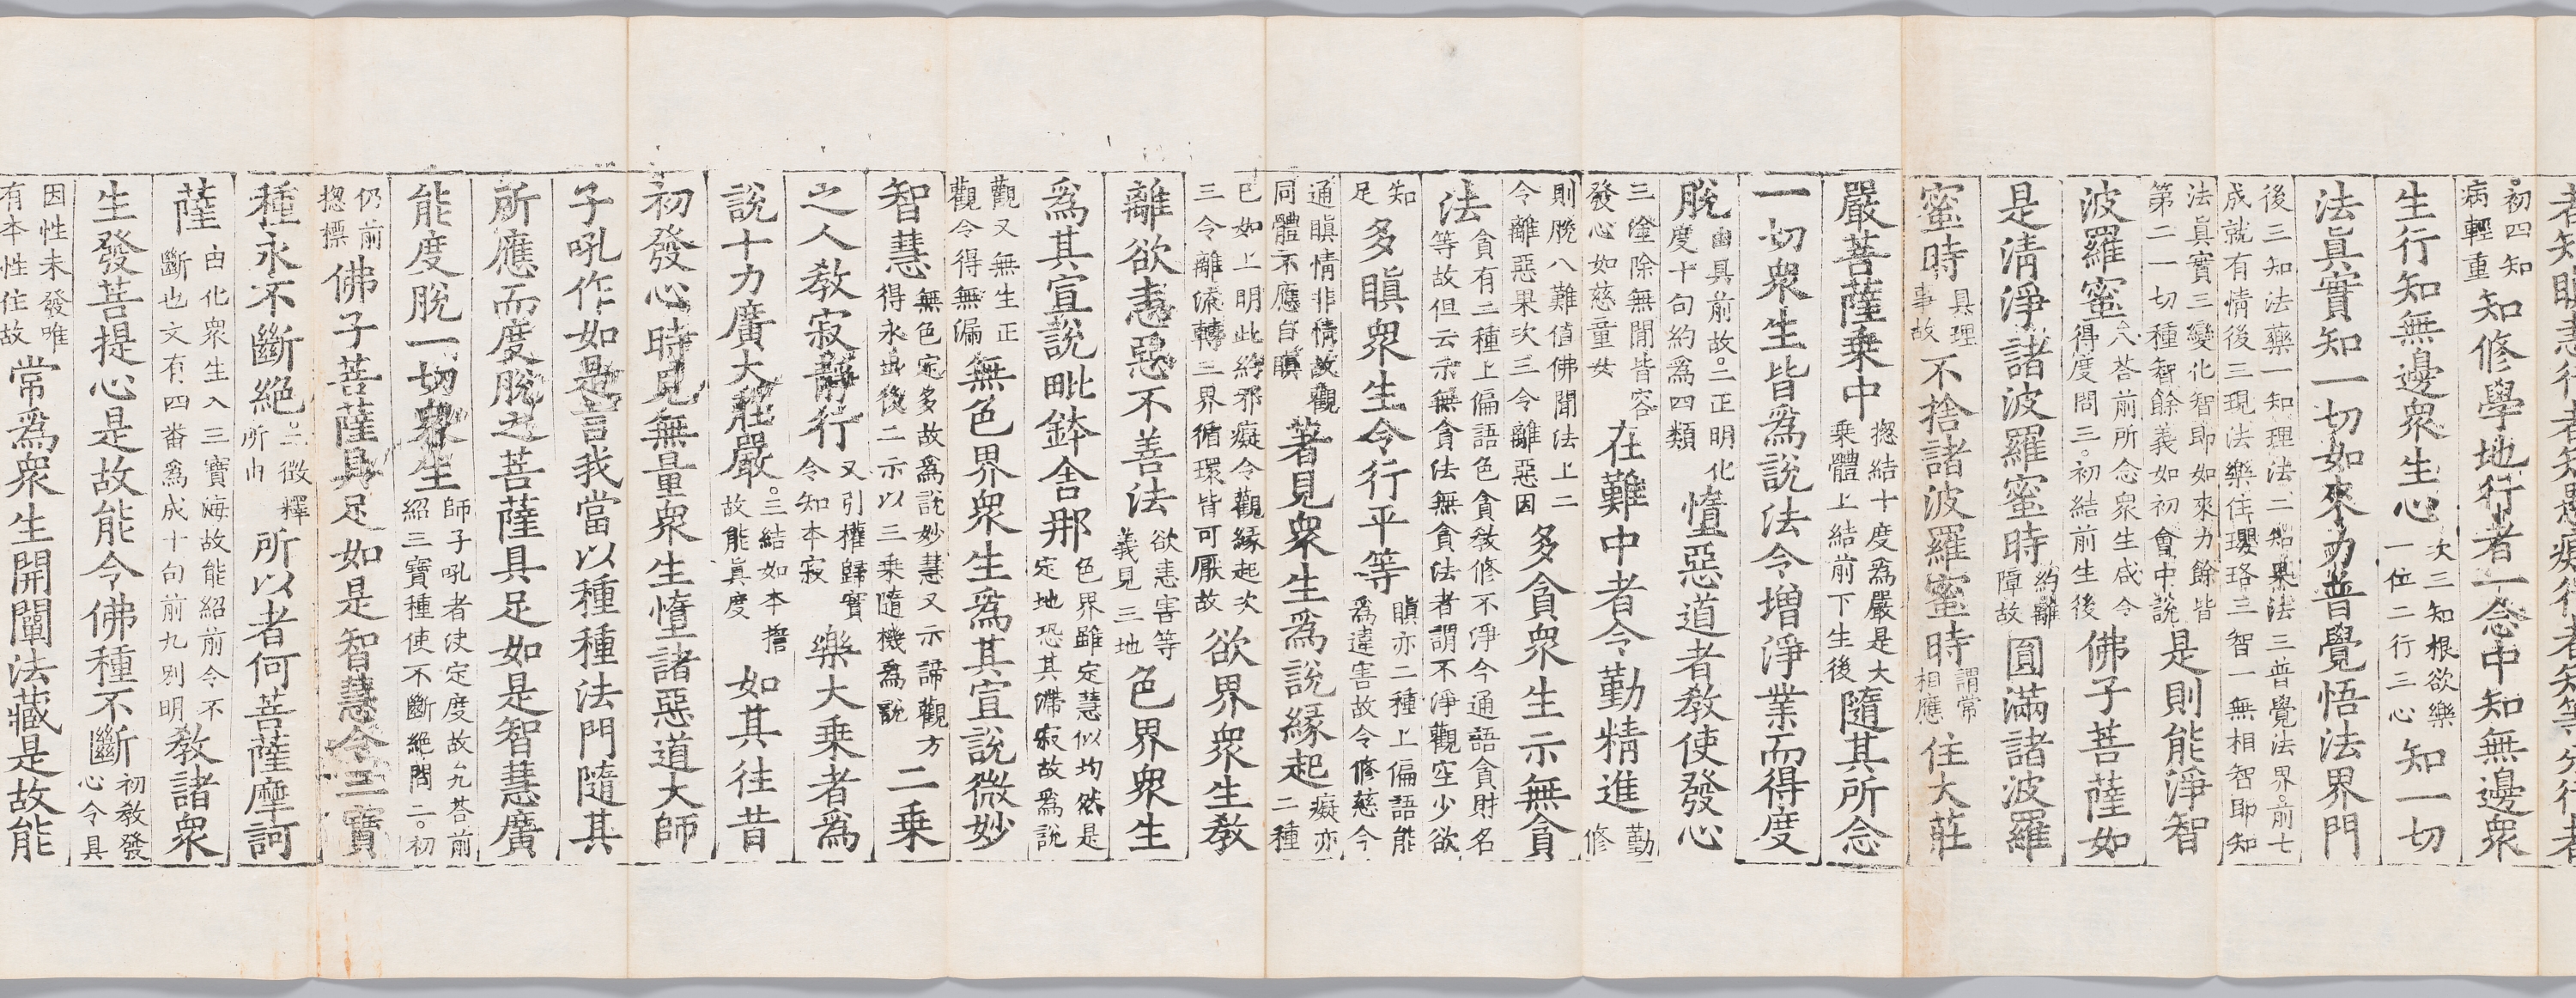 者知瞋恚行者知愚癡行者知等分行者
初四知病輕重知修學地行者一念中知無邊衆
生行知無邊衆生心次三知根欲樂一位二行三心知一切
法眞實知一切如來力普覺悟法界門
後三知法藥一知理法二知果法三普覺法界。前七成就有情後三現法樂住瓔珞三智一無相智即知
法眞實三變化智即如來力餘皆第二一切種智餘義如初會中說是則能淨智
波羅蜜八答前所念衆生咸令得度問三。初結前生後佛子菩薩如
是淸淨諸波羅蜜時約離障故圓滿諸波羅
蜜時具理事故不捨諸波羅蜜時謂常相應住大莊
嚴菩薩乗中揔結十度爲嚴是大乗體上結前下生後隨其所念
一切衆生皆爲說法令增淨業而得度
脫由具前故。二正明化度十句約爲四類墮惡道者敎使發心
三塗除無閒皆容發心如慈童女在難中者令勤精進勤修
則脫八難值佛聞法上二令離惡果次三令離惡因多貪衆生示無貪
法貪有二種上偏語色貪敎修不淨今通語貪財名等故但云示無貪法無貪法者謂不淨觀空少欲
知足多瞋衆生令行平等瞋亦二種上偏語能爲違害故令修慈今
通瞋情非情故觀同體不應自瞋著見衆生爲說緣起癡亦二種
已如上明此約邪癡令觀緣起次三令離流轉三界循環皆可厭故欲界衆生敎
離欲恚惡不善法欲恚害等義見三地色界衆生
爲其宣說毗鉢舍那色界雖定慧似均然是定地恐其滯寂故爲說
觀又無生正觀令得無漏無色界衆生爲其宣說微妙
智慧無色定多故爲說妙慧又示諦觀方得永出後二示以三乗隨機爲說二乗
之人敎寂靜行又引權歸實令知本寂樂大乗者爲
說十力廣大莊嚴。三結如本擔故能眞度如其往昔
初發心時見無量衆生墮諸惡道大師
子吼作如是言我當以種種法門隨其
所應而度脫之菩薩具足如是智慧廣
能度脫一切衆生師子吼者決定度故九答前紹三寶種使不斷絕問二。初
仍前揔標佛子菩薩具足如是智慧令三寶
種永不斷絕。二徵釋所由所以者何菩薩摩訶
薩由化衆生入三寶海故能紹前令不斷也文有四番爲成十句前九別明敎諸衆
生發菩提心是故能令佛種不斷初敎發心令具
因性未發唯有本性住故常爲衆生開闡法藏是故能